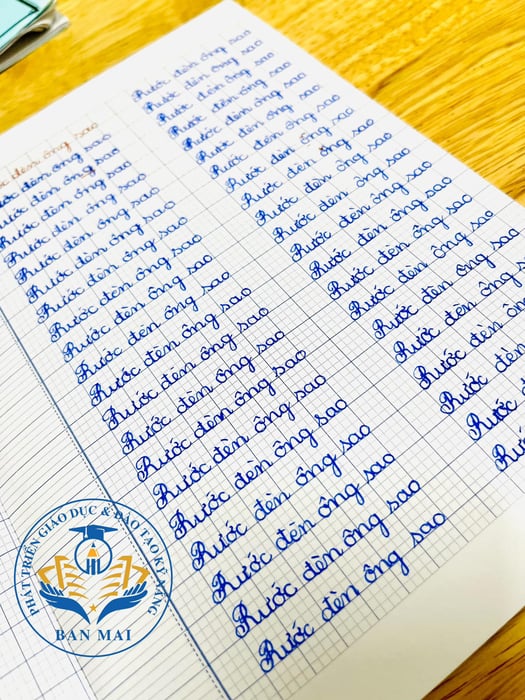 đèn ông sao
đèn ông sao
đèn ông sao
Rước đèn ông sao
Rước đèn ông sao
Rước đèn ông sao
Rước đèn ông sao
Rước đèn ông sao
Rước đèn ông sao
Rước đèn ông sao
Rước đèn ông sao
Rước đèn ông sao
Rước đèn ông sao
Rước đèn ông sao
Rước đèn ông sao
Rước đèn ông sao
Rước đèn ông sao
Rước đèn ông sao
Rước đèn ông sao
Rước đèn ông sao
Rước đèn ông sao
Rước đèn ông sao
Rước đèn ông sao
Rước đèn ông sao
Rước đèn ông sao
Rước đèn ông sao
Rước đèn ông sao
Rước đèn ông sao
Rước đèn ông sao
Rước đèn ông sao
Rước đèn ông sao
Rước đèn ông sao
Rước đèn ông sao
Rước đèn ông sao
Rước đèn ông sao
Rước đèn ông
Rước đèn ông
Rước đèn
Rước
PHÁT TRIỂN GIÁO DỤC & ĐÀO TẠO KỸ NĂNG
BAN MAI